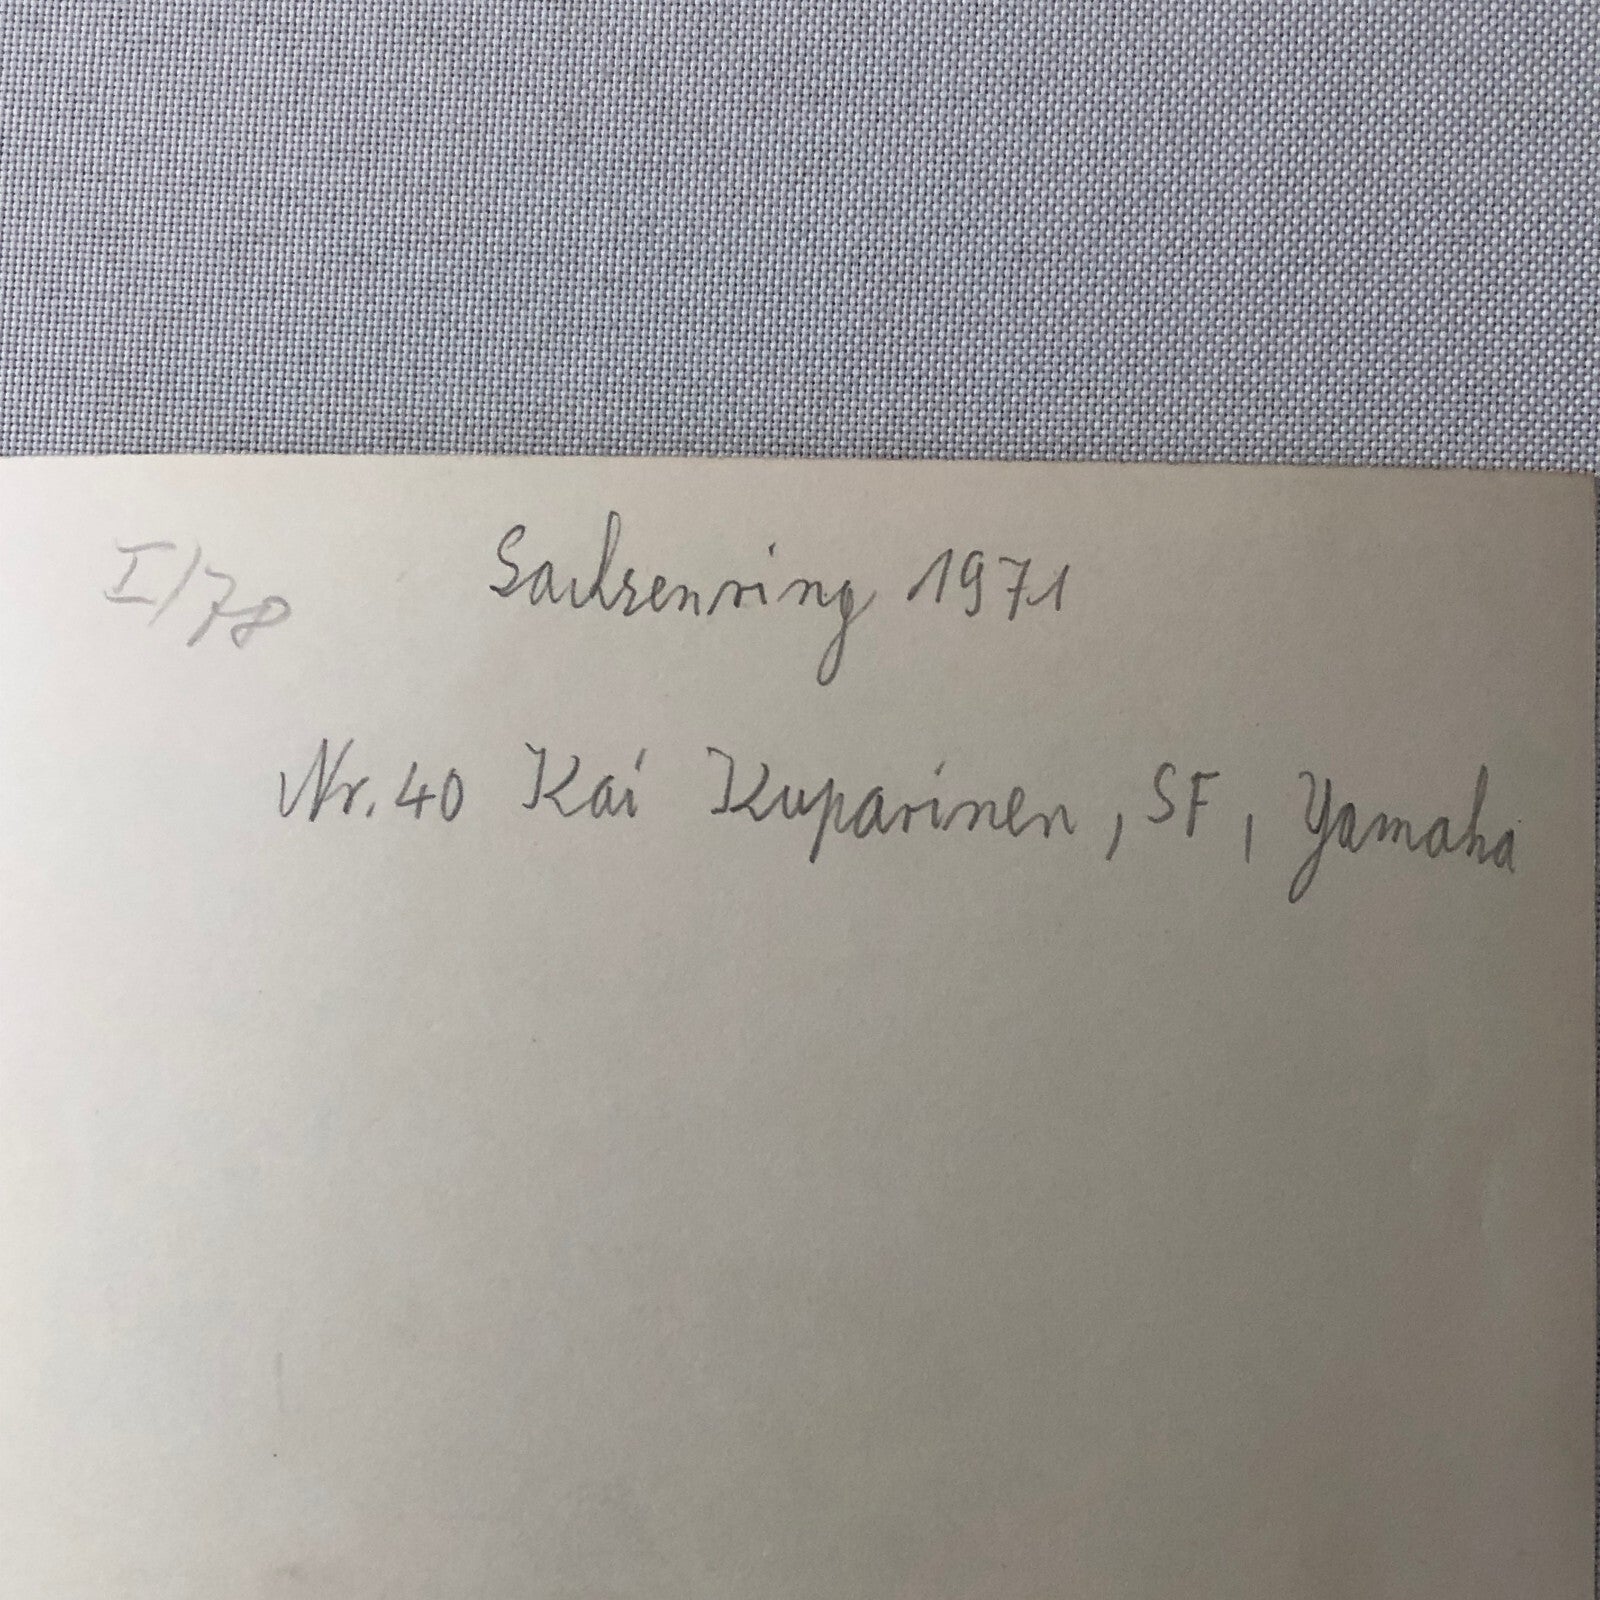 I/78
Sachsenring 1971
Nr. 40 Kai Kuparinen, SF, Yamaha